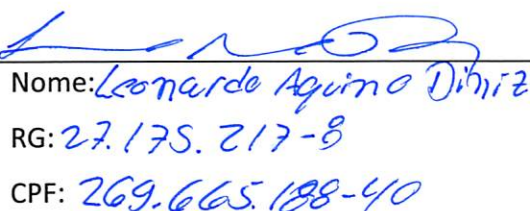 Nome: Leonardo Aquino Diniz
RG: 27.175.217-8
CPF: 269.665.188-40